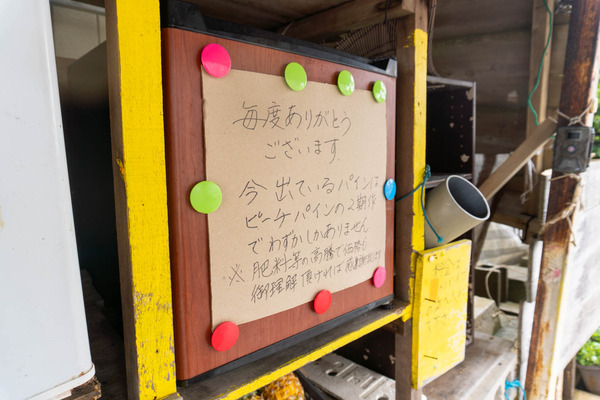 毎度ありがとう
ございます
今出ているパインは
ピーチパインの2期作
でわずかしかありません
※肥料等の高騰で価格も
御理解頂ければ